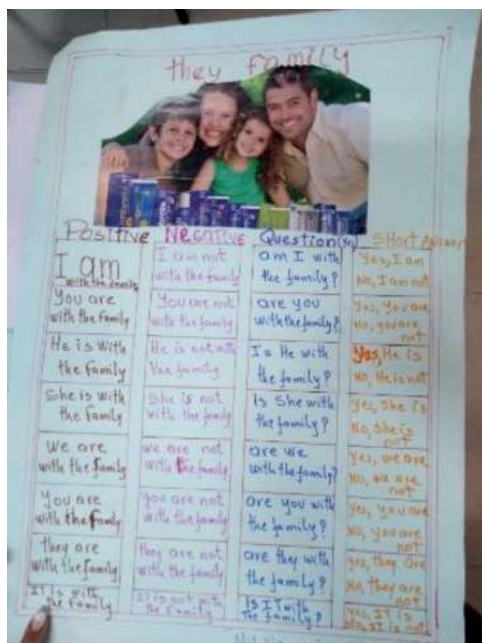 they family
Positive Negative Question(yn) Short Answer
I am
with the family
I am not
with the family
am I with
the family?
Yes, I am
No, I am not
You are
with the family
You are not
with the family
are you
with the family?
Yes, you are
No, you are
not
He is with
the family
He is not with
the family
Is He with
the family?
Yes, He is
No, He is not
She is with
the family
She is not
with the family
Is She with
the family?
yes, she is
No, she is
not
We are
with the family
we are not
with the family
are we
with the family?
yes, we are
No, we are
not
You are
with the family
you are not
with the family
are you with
the family?
yes, you are
No, you are
not
they are
with the family
they are not
with the family
are they with
the family?
yes, they are
No, they are
not
It Is with
the family
It is not with
the family
Is IT with
the family?
yes, It is
No, It is not